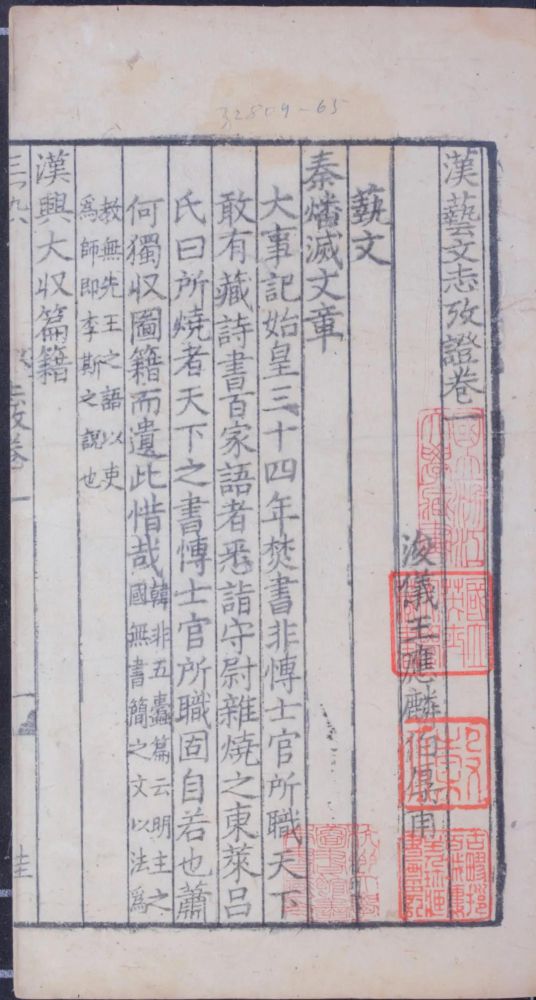 漢藝文志攷證卷一
浚儀王應麟伯厚甫
藝文
秦燔滅文章
大事記始皇三十四年焚書非博士官所職天下
敢有藏詩書百家語者悉詣守尉雜燒之東萊呂
氏曰所燒者天下之書博士官所職固自若也蕭
何獨収圖籍而遺此惜哉
韓非五蠹篇云明主之
國無書簡之文以法爲
教無先王之語以吏
爲師即李斯之說也
漢興大収篇籍
32809-65